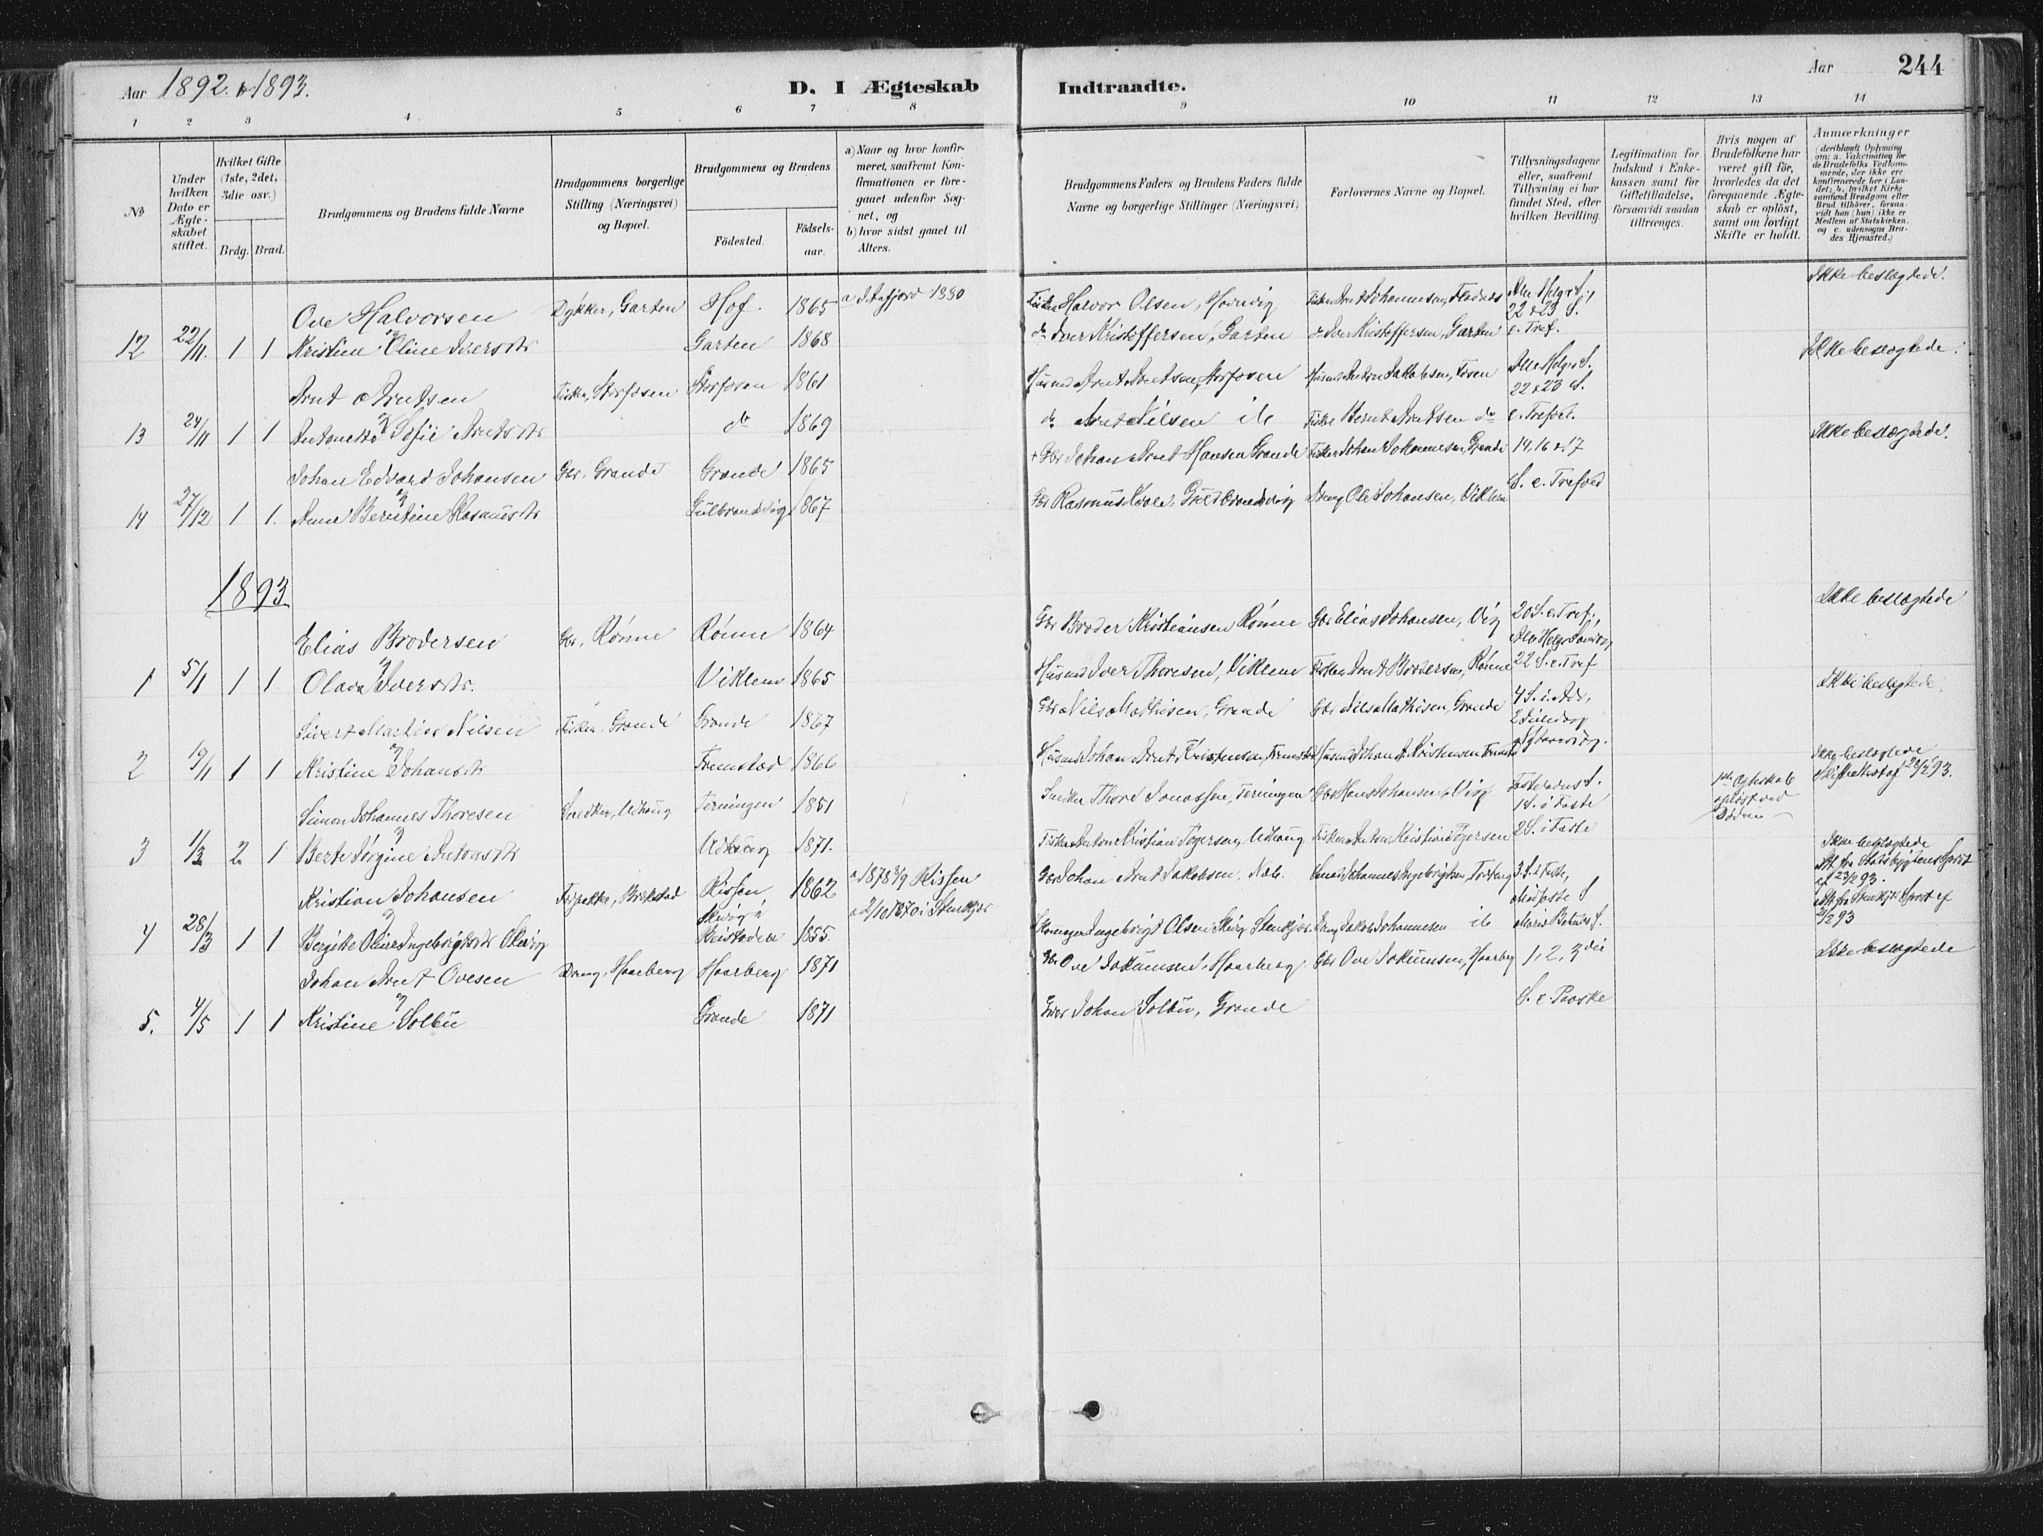 Aar 1892 & 1893.
D. I Ægteskab Indtraadte.
Aar 244
1 2 3 4 5 6 7 8 9 10 11 12 13 14
No
Under hvilken Dato er Ægteskabet stiftet.
Hvilket Gifte (1ste, 2det, 3die osv.)
Brdg. Brud.
Brudgommens og Brudens fulde Navne
Brudgommens borgerlige Stilling (Næringsvei) og Bopæl.
Brudgommens og Brudens
Fødested.
Fødselsaar.
a) Naar og hvor konfirmeret, saafremt Konfirmationen er foregaaet udenfor Sognet, og
b) hvor sidst gaaet til Alters.
Brudgommens Faders og Brudens Faders fulde Navne og borgerlige Stillinger (Næringsvei)
Forlovernes Navne og Bopæl.
Tillysningsdagene eller, saafremt Tillysning ei har fundet Sted, efter hvilken Bevilling.
Legitimation for Indskud i Enkekassen samt for Giftetilladelse, forsaavidt saadan tiltrænges.
Hvis nogen af Brudefolkene har været gift før, hvorledes da det foregaaende Ægteskab er opløst, samt om lovligt Skifte er holdt.
Anmærkninger (deriblandt Oplysning om: a. Vakcination for de Brudefolks Vedkommende, der ikke ere konfirmerede her i Landet; b. hvilket Kirkesamfund Brudgom eller Brud tilhører, forsaavidt han (hun) ikke er Medlem af Statskirken, og c. udensogns Brudes Hjemsted.)
Ove Halvorsen Dykker, Garten Hof. 1865 Fisker Halvor Olsen, Fisker Arnt Johannesen, Alle Helg. S. Ikke beslægtede.
22 & 23 S.
12 22/11 1 1 Kristine Oline Iversdtr Garten 1868 do Iver Kristoffersen, Garten do Iver Kristoffersen, Garten e. Tref. Ikke beslægtede.
Arnt Arntsen Fisker, Storfosen Storfosen 1861 Husmd Arnt Arntsen, Storfosen Alle Helg. S.
22 & 23 S.
13 24/11 1 1 Antonette Sofie Arntsdtr do 1869 do Arnt Nilsen ib Fisker Bernt Arntsen do e. Trefold. Ikke beslægtede.
Johan Edvard Johansen Gbr. Grande Grande 1865 Gbr Johan Arnt Hansen Grande Fisker Johan Johannesen, Grande 14, 16 & 17
14 27/12 1 1. Anna Berntine Rasmusdtr Gulbrandsvig 1867 Gbr Rasmus Gulbrandsvig Dreng Ole Johansen, Viklem S. e. Trefold
1893
Elias Brodersen Gbr, Rønne Rønne 1864 Gbr Broder Kristiansen Rønne Gbr Elias Johansen, Vig 20 S. e. Tref, Ikke beslægtede
1 5/1 1 1 Olava Iversdtr. Viklem 1865 Husmd Iver Thoresen, Viklem Fisker Arnt Brodersen, Rønne 22 S. e. Tref
Sivert Martin Nilsen Fisker, Grande Grande 1867 Gbr Nils Mathisen, Grande Gbr Nils Mathisen, Grande 4 S. i Adv, Ikke beslægtede.
2 Juledag
2 19/1 1 1 Kristine Johansdtr Fremstad 1866 Husmd Johan Arnt Kristensen, Fremstad Nytaarsdag.
Ikke beslægtede
Simon Johannes Thoresen Snedker, Uthaug Terningen 1851 Snedker Thore Jonassen, Terningen Gbr Hans Johansen, Vig Fastelavns S. 1ste Ægteskab opløst ved Døden
1 S. i Faste
3 1/3 2 1 Berte Jørgine Antonsdtr Uthaug 1871. Fisker Anton Kristian Tøgersen, Uthaug Fisker Anton Kristian Tøgersen 2 S. i Faste
Ikke beslægtede
Kristian Johansen Brekstad Rissen 1862 a 1878 Rissen Gbr Johan Arnt Jakobsen, 3 S. i Faste, Att. fra Stadsbygdens Sprst af 23/2 93.
Midfaste S
4 28/3 1 1 Bergitte Oline Ingebrigtsdtr 1855. i Stenkjær Ingebrigt Olsen Johannesen ib Mariæ Bebud. S. Att. fra Stenkjær Sprst af 2/2 93
Johan Arnt Ovesen Dreng, Haarberg Haarberg 1871 Gbr Ove Jokumsen, Haarberg Gbr Ove Jokumsen, Haarberg 1, 2, 3die Ikke beslægtede
5. 4/5 1 1 Kristine Solbu Grande 1871 Johan Solbu, Grande S. e. Paaske